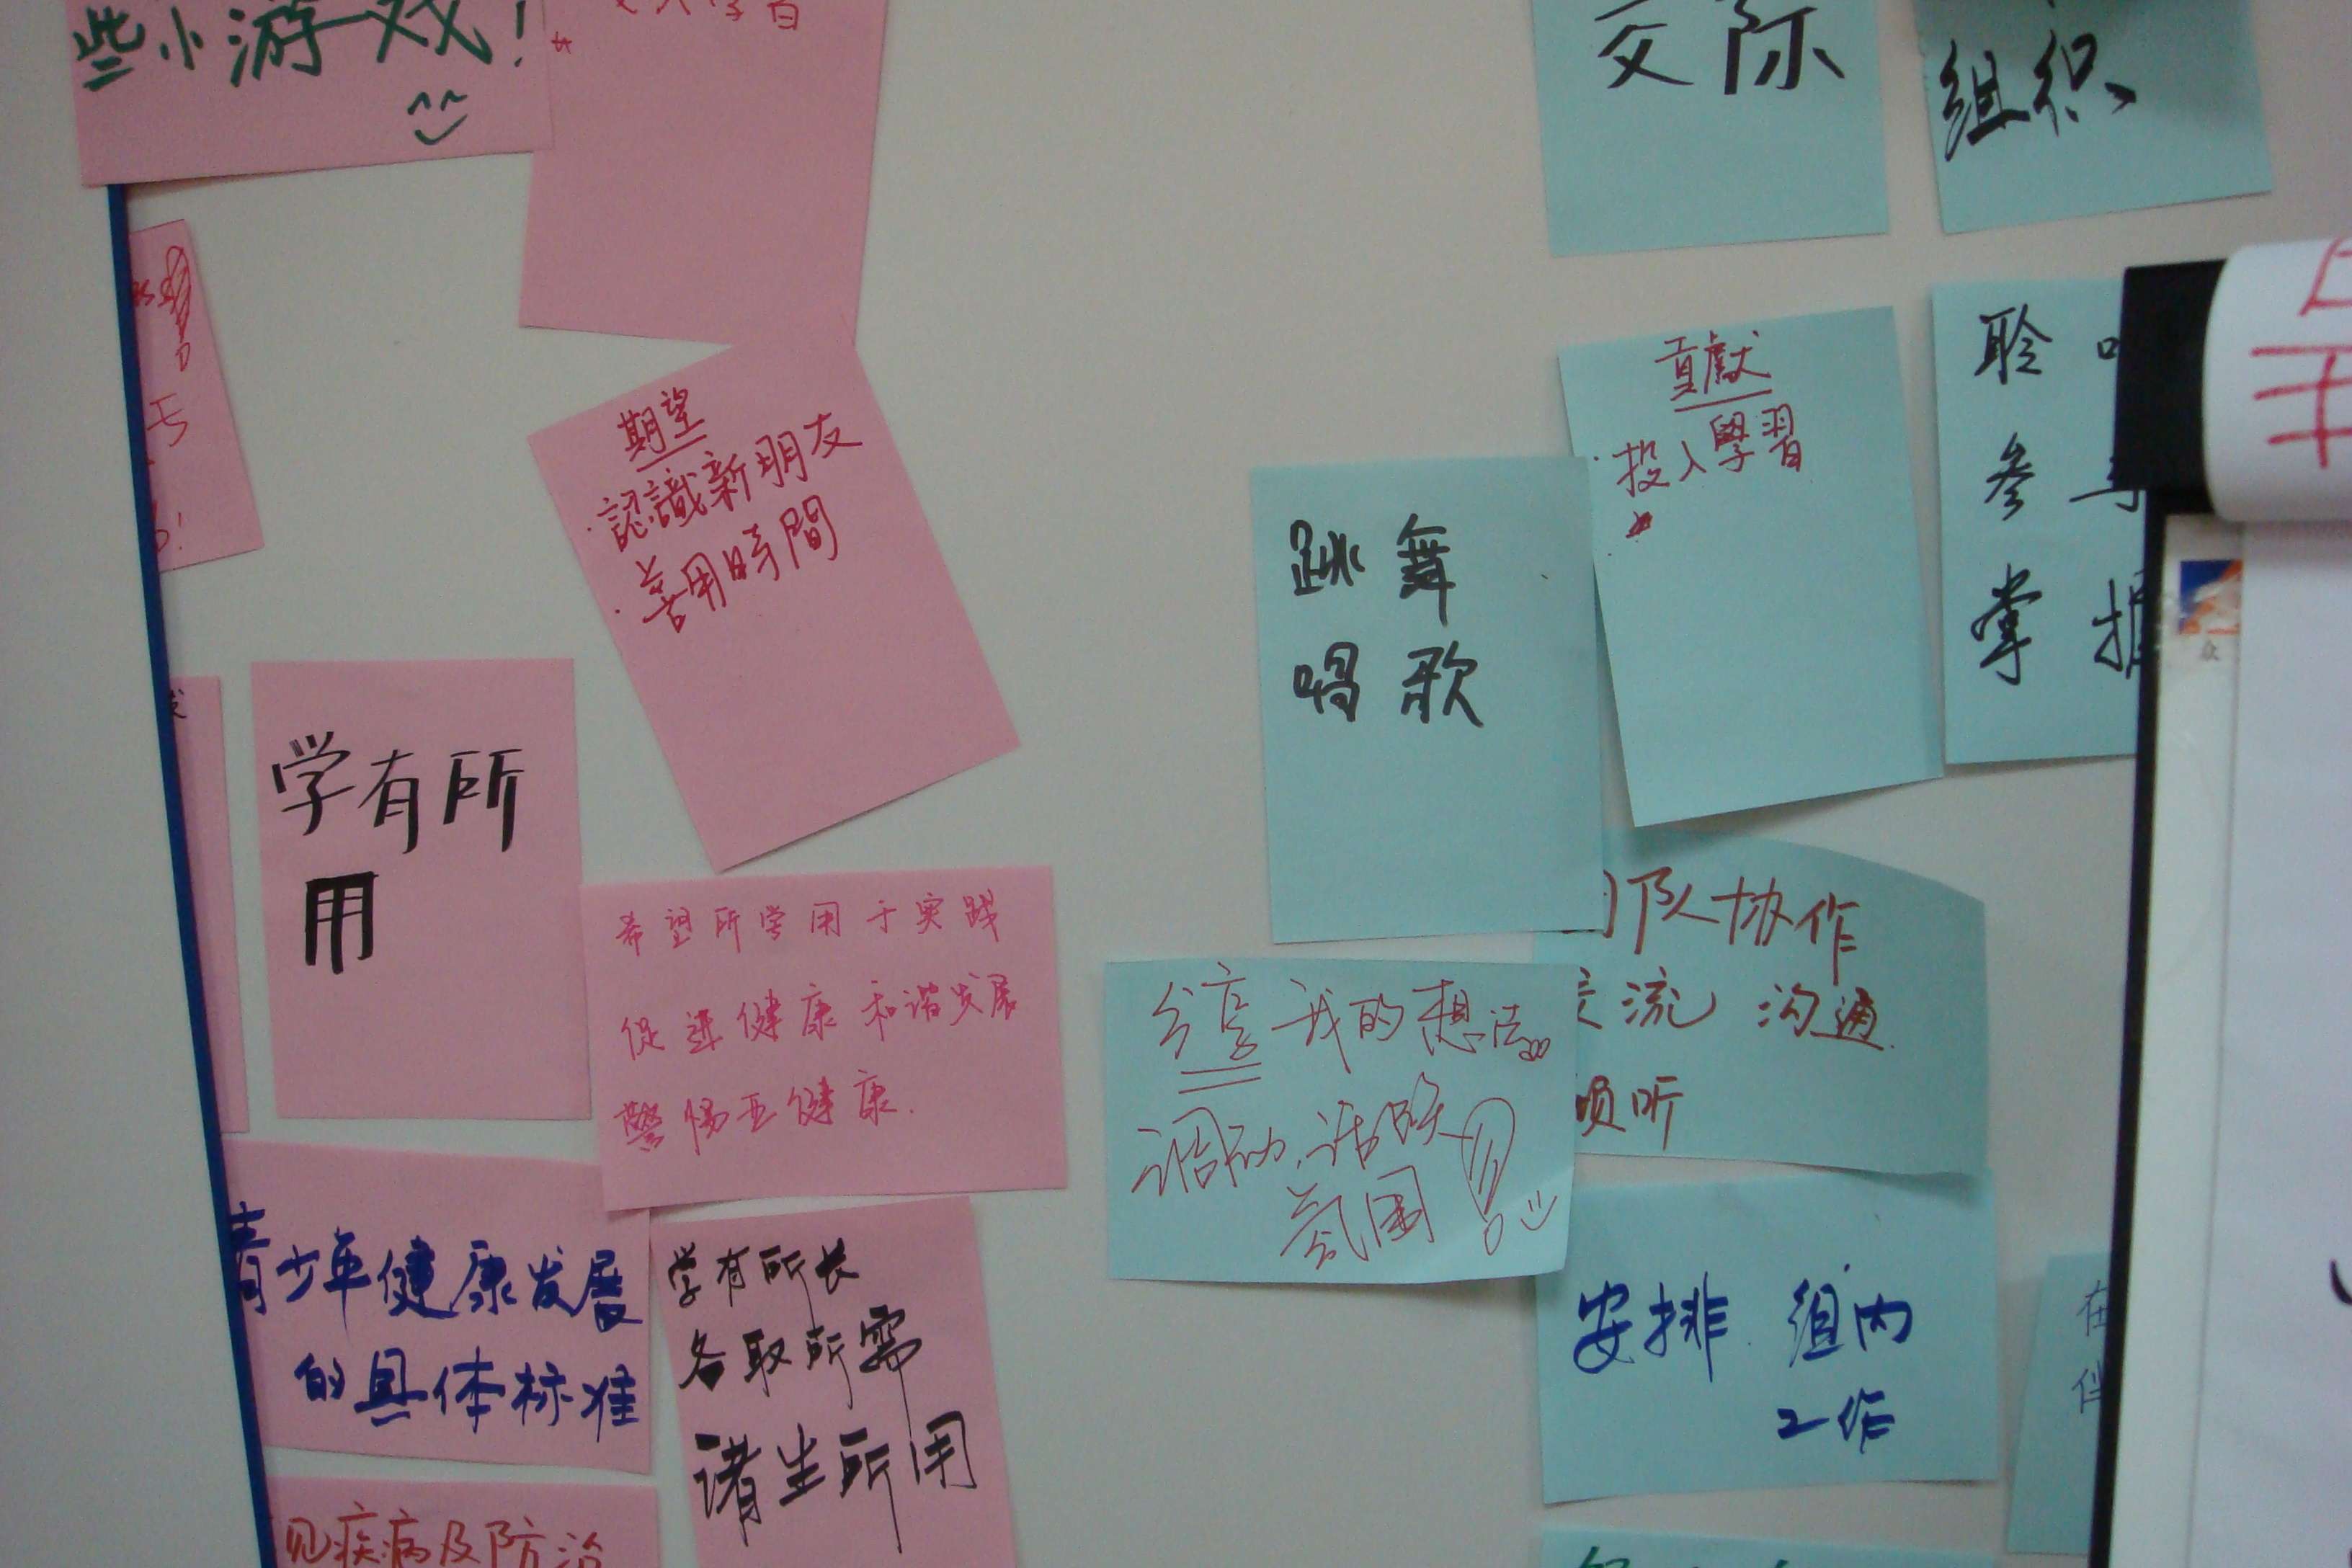 些小游戏!
期望
·認識新朋友
·善用時間
学有所
用
希望所学用于实践
促进健康和谐发展
警惕亚健康.
青少年健康发展
的具体标准
学有所长
各取所需
诸生所用
见疾病及防治
交际
组织
貢獻
·投入學習
聆
参
掌握
跳舞
唱歌
团队协作
交流 沟通.
倾听
分享我的想法。
调动、活跃
氛围
安排 组内
工作
在
伴